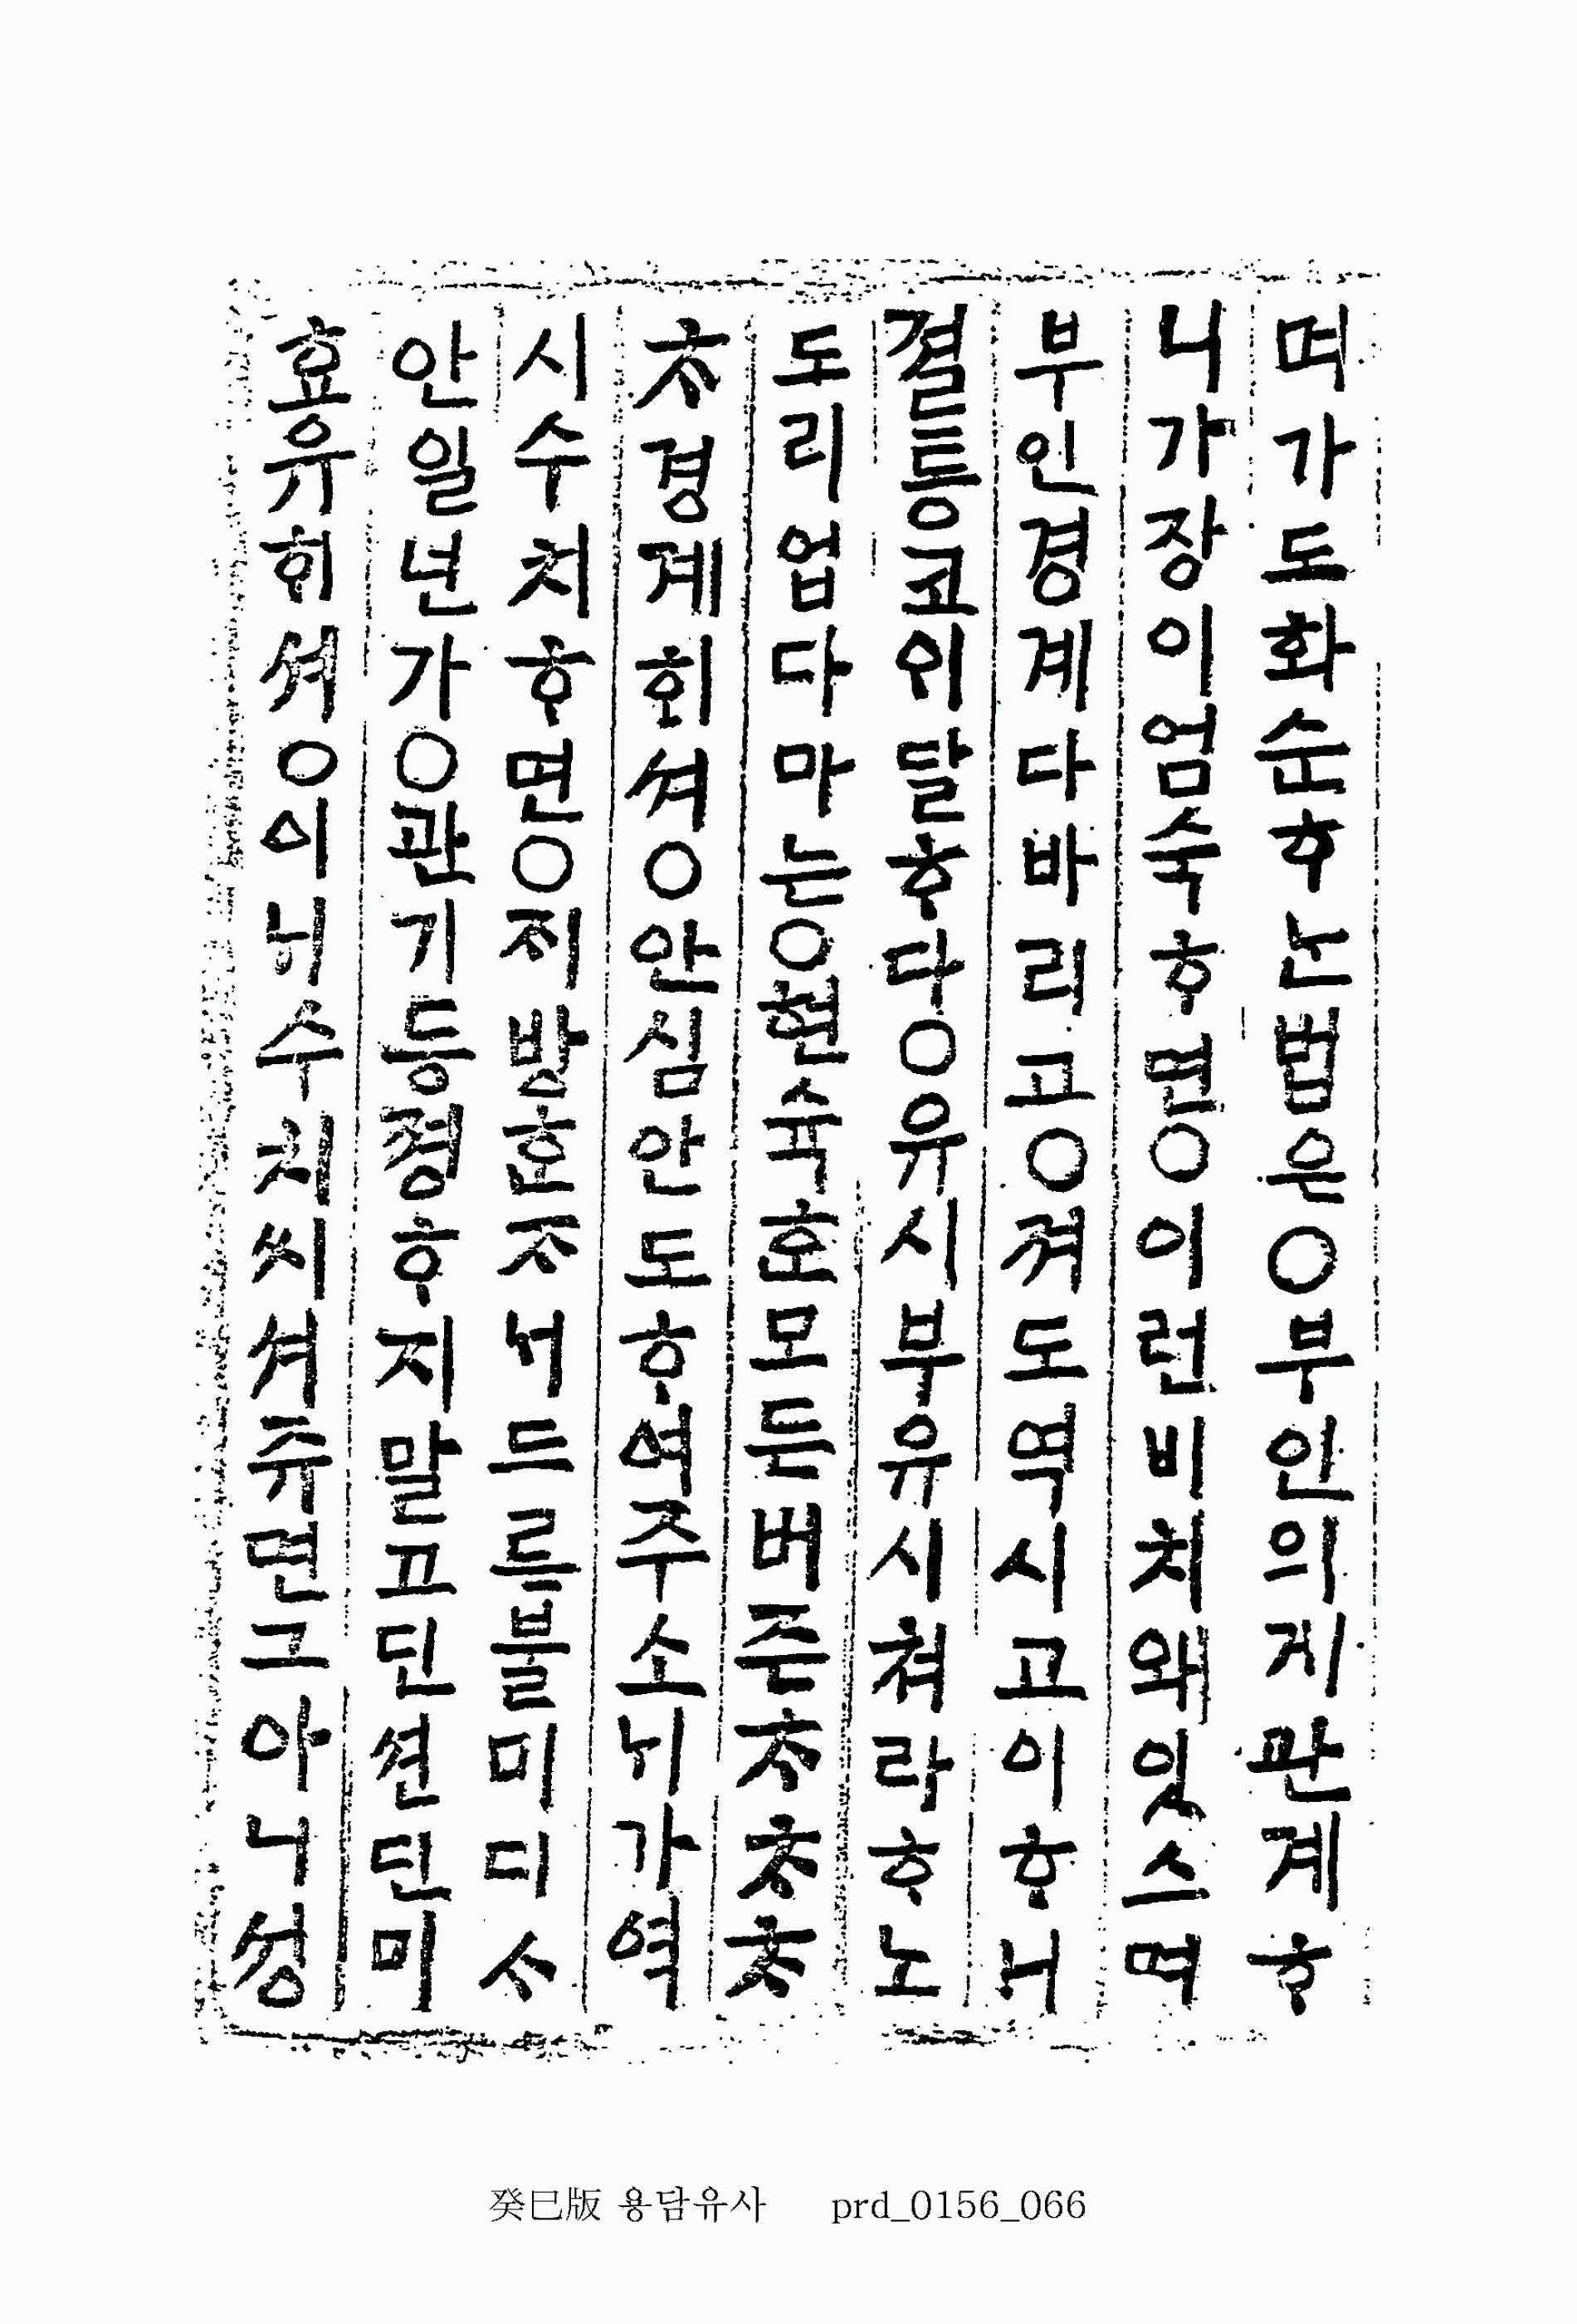 며가도화순ᄒᆞ논법은○부인의게관계ᄒᆞ
니가장이엄숙ᄒᆞ면○이런비치왜잇스며
부인경계다바리고○져도역시고이ᄒᆞ니
졀통코ᄋᆡ달ᄒᆞ다○유시부유시쳐라ᄒᆞ노
도리업다마는○현슉ᄒᆞᆫ모든버즌ᄌᆞᄎᆞᄎᆞ
ᄎᆞ경계ᄒᆡ셔○안심안도ᄒᆞ여주소ᄂᆡ가역
시수치ᄒᆞ면○ᄌᆡ방ᄒᆞᆫᄌᆞ너드를불미디ᄉᆞ
안일년가○관기등졍ᄒᆞ지말고딘션딘미
효유ᄒᆡ셔○이ᄂᆡ수치씨셔쥬면그아니셩
癸巳版 용담유사 prd_0156_066